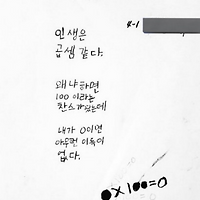 4-1
인생은
곱셈 같다.
왜냐하면
100 이라는
찬스가 있는데
내가 0이면
아무런 이득이
없다.
0×100=0